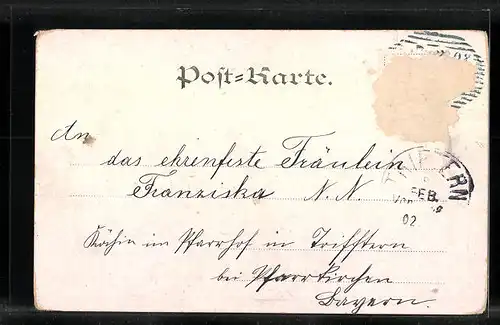 Post=Karte.
An
das ehrenfeste Fräulein
Franziska N. N.
FEB.
02.
Köchin im Pfarrhof in Triftern
bei Pfarrkirchen
Bayern.